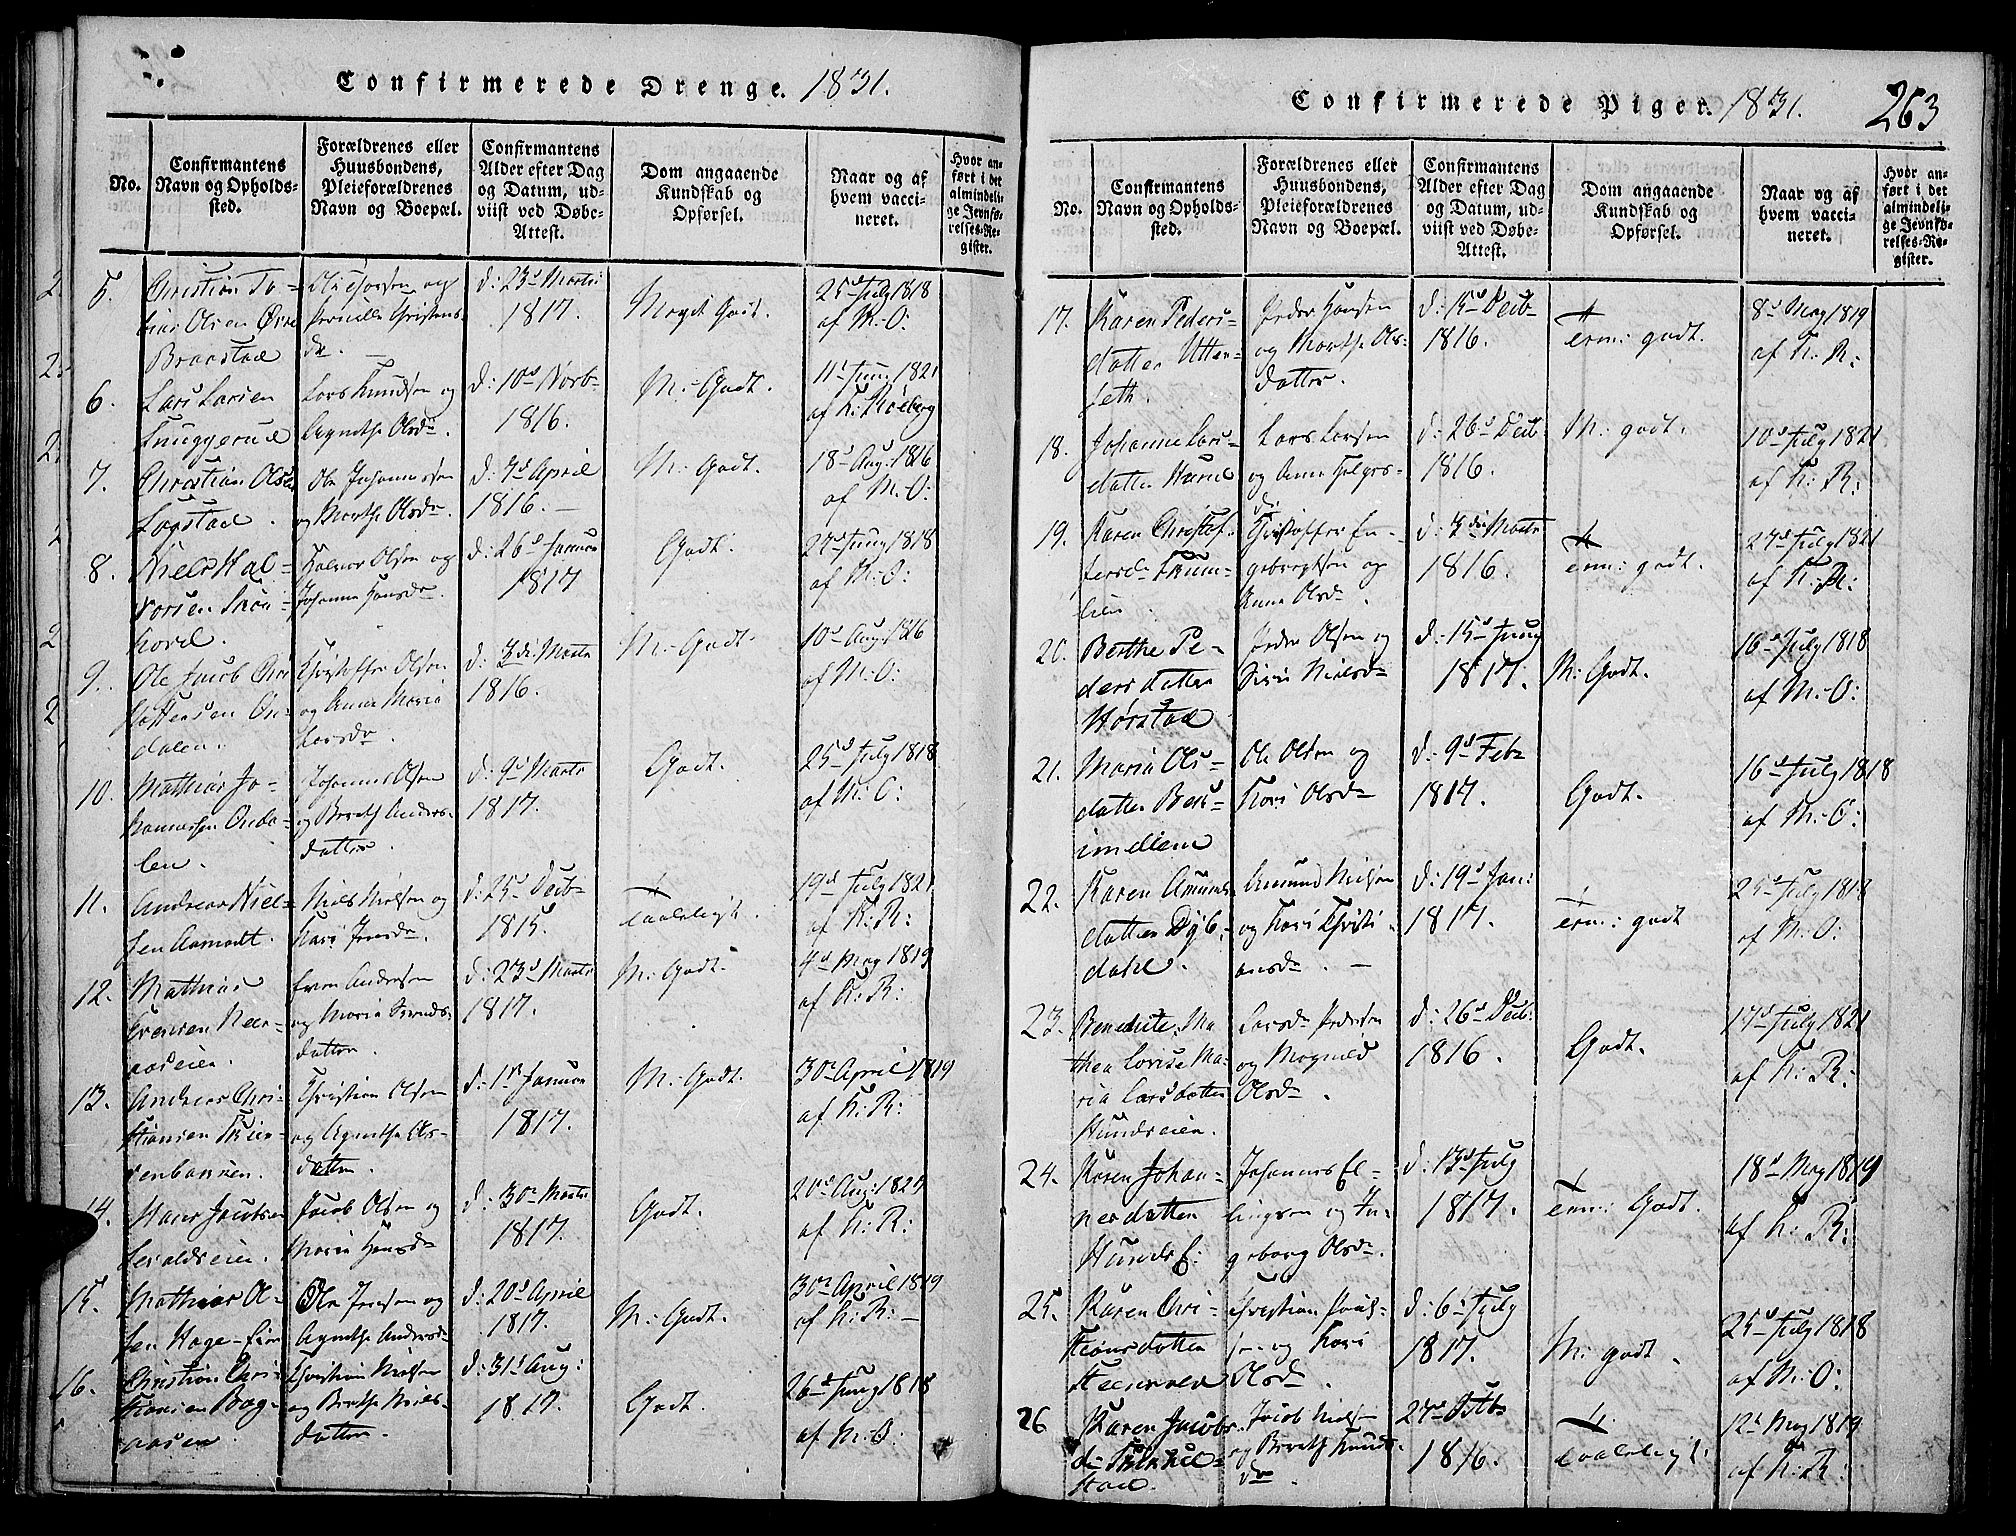 Confirmerede Drenge. 1831.
No.
Confirmantens
Navn og Opholds-
sted.
Forældrenes eller
Huusbondens,
Pleieforældrenes
Navn og Boepæl.
Confirmantens
Alder efter Dag
og Datum, ud-
viist ved Døbe-
Attest.
Dom angaaende
Kundskab og
Opførsel.
Naar og af
hvem vacci-
neret.
Hvor an-
ført i det
almindeli-
ge Jevnfø-
relses-Re-
gister.
5.
Christian To-
bias Olsen
Braastad
Ole
Pernille Christens-
dr.
d: 23d Marts
1817.
Meget Godt.
25d July 1818
af M:O:
6.
Lars Larsen
Lars Knudsen og
Agnethe Olsdr.
d: 10d Novb
1816.
M: Godt.
11t Juni 1821
7.
Christian Olsen
Ole Johannessen
og Marthe Olsdr
d: 7d April
1816. —
M: Godt.
18d Aug: 1816
af M:O:
8.
Niels Hal-
vorsen
Halvor Olsen og
Johanne Hansdr.
d: 26d Januar
1817
Godt.
27d Juny 1818
af M:O:
9.
Ole Jacob Chri-
stoffersen On-
dalen.
Christoffer Olsen
og Anne Maria
Larsdr.
d: 3die Marts
1816.
M: Godt.
10d Aug: 1816
af M:O:
10.
Mathias Jo-
hannessen Onda-
len.
Johannes Olsen
og Berethe Anders-
datter.
d: 9d Marts
1817.
Godt.
25d July 1818
af M:O:
11.
Andreas Niel-
sen Aamodt.
Niels Nielsen og
Kari Jensdr.
d: 25d Decb
1815.
taaleligt.
19d July 1821
af K:R:
12.
Mathias
Evensen
Even Andersen
og Maria
datter.
d: 23d Marts
1817.
M: Godt.
4d May 1819
af K:R:
13.
Andreas Chri-
stiansen
Christian Olsen
og Agnethe Ols-
datter.
d: 1st Januar
1817.
M: Godt.
30d April 1819
af K:R:
14.
Hans Jacobsen
Jacob Olsen og
Maria Hansdr
d: 30d Marts
1817.
Godt.
20d Aug: 1829
af K:R:
15.
Mathias Ol-
sen Hage-Eien
Ole Jensen og
Agnethe Andersdr
d: 20d April
1817.
M: Godt.
30d April 1819
af K:R: —
16.
Christian Chri-
stiansen Bag-
aasen
Christian Nielsen
og Berthe Niels-
datter.
d: 31t Aug:
1817.
Godt.
26d Juny 1818
af M:O:
Confirmerede Piger. 1831. 263
No.
Confirmantens
Navn og Opholds-
sted.
Forældrenes eller
Huusbondens,
Pleieforældrenes
Navn og Boepæl.
Confirmantens
Alder efter Dag
og Datum, ud-
viist ved Døbe-
Attest.
Dom angaaende
Kundskab og
Opførsel.
Naar og af
hvem vacci-
neret.
Hvor an-
ført i det
almindeli-
ge Jevnfø-
relses-Re-
gister.
17.
Karen Peders-
datter
Peder Hansen
og Marthe Ols-
datter.
d: 15d Decb
1816.
temm: godt.
8d May 1819
af K:R:
18.
Johanne Lars-
datter
Lars Larsen
og Anne Helges-
dr
d: 26d Decb:
1816.
M: godt.
10d July 1821
af K:R:
19.
Karen Christof-
fersdr
Christoffer En-
gebregtsen og
Anne Olsdr
d: 3die Marts
1816.
temm: godt.
27d July 1821
af K:R:
20.
Berthe Pe-
dersdatter
Hørstad
Peder Olsen og
Siri Nielsdr
d: 15d Juny
1817.
M: Godt.
16d July 1818
af M:O:
21.
Maria Ols-
datter
Ole Olsen og
Kari Olsdr
d: 9d Feb
1817.
Godt.
16d July 1818
af M:O:
22.
Karen Amunds-
datter Dyb-
dahl.
Amund Nielsen
og Kari Christi-
ansdr. —
d: 19d Jan:
1817.
temm: godt
25d July 1818
af M:O:
23.
Benedicte Ma-
thea Lovise Ma-
ria Larsdatter
Hundseien.
Lars Pedersen
og Magnild
Olsdr.
d: 26d Decb:
1816.
Godt.
17d July 1821
af K:R:
24.
Karen Johan-
nesdatter
Hunds E:
Johannes El-
lingsen og In-
geborg Olsdr.
d: 13d July
1817.
temm: Godt.
18d May 1819
af K:R:
25.
Karen Chri-
stiansdatter
Christian Poul-
sen og Kari
Olsdr.
d: 6t July
1817.
M: godt.
25d July 1818
af M:O:
26
Karen Jacobs-
dr
Jacob Nielsen
og Berethe Knuds-
dr.
27d
1816.
taaleligt.
12t May 1819
af K:R: